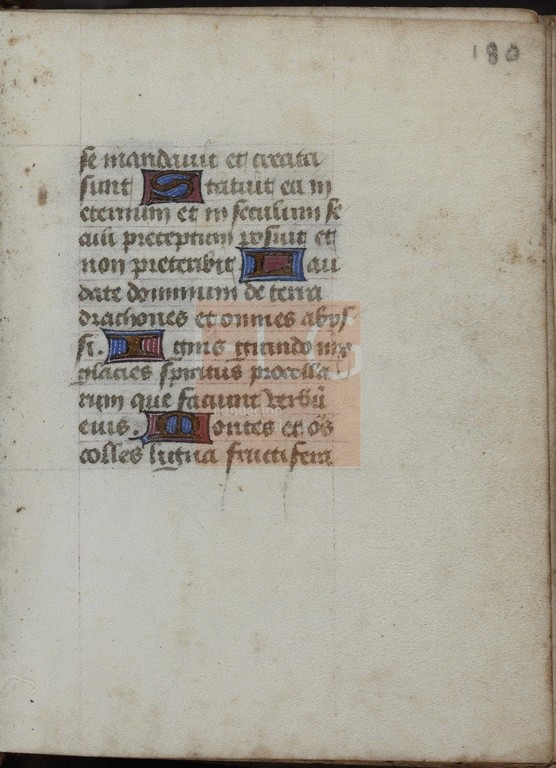 180
se mandauit et creata
sunt Statuit ea in
eternum et in seculum se
culi preceptum posuit et
non preteribit Lau
date dominum de terra
drachones et omnes abys
si. Ignis grando nix
glacies spiritus procella
rum que faciunt verbū
eius. Montes et oēs
colles ligna fructifera
FLG
fundación